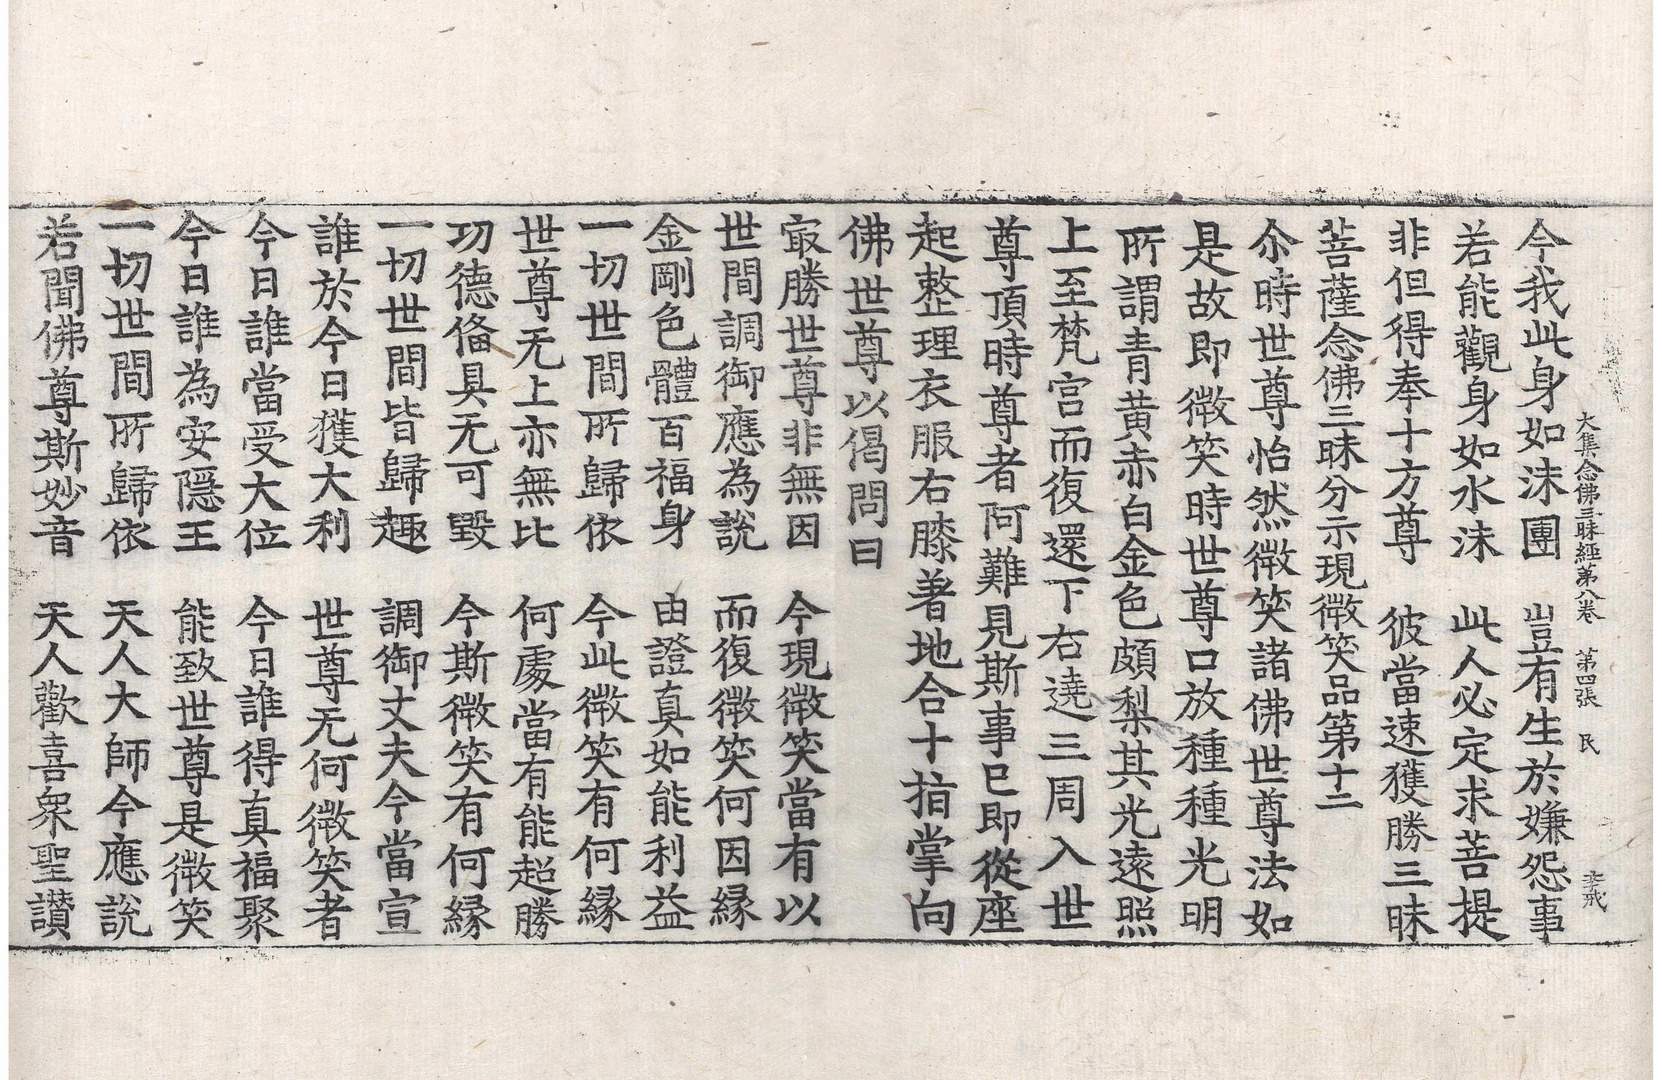 大集念佛三昧經第八卷 第四張 民
今我此身如沫團 豈有生於嫌怨事
若能觀身如水沫 此人必定求菩提
非但得奉十方尊 彼當速獲勝三昧
菩薩念佛三昧分示現微笑品第十二
尒時世尊怡然微笑諸佛世尊法如
是故即微笑時世尊口放種種光明
所謂青黃赤白金色頗梨其光遠照
上至梵宮而復還下右遶三周入世
尊頂時尊者阿難見斯事已即從座
起整理衣服右膝著地合十指掌向
佛世尊以偈問曰
冣勝世尊非無因 今現微笑當有以
世間調御應為說 而復微笑何因縁
金剛色體百福身 由證真如能利益
一切世間所歸依 今此微笑有何縁
世尊无上亦無比 何處當有能超勝
功德俻具无可毀 今斯微笑有何縁
一切世間皆歸趣 調御丈夫今當宣
誰於今日獲大利 世尊无何微笑者
今日誰當受大位 今日誰得真福聚
今日誰為安隱王 能致世尊是微笑
一切世間所歸依 天人大師今應說
若聞佛尊斯妙音 天人歡喜衆聖讃